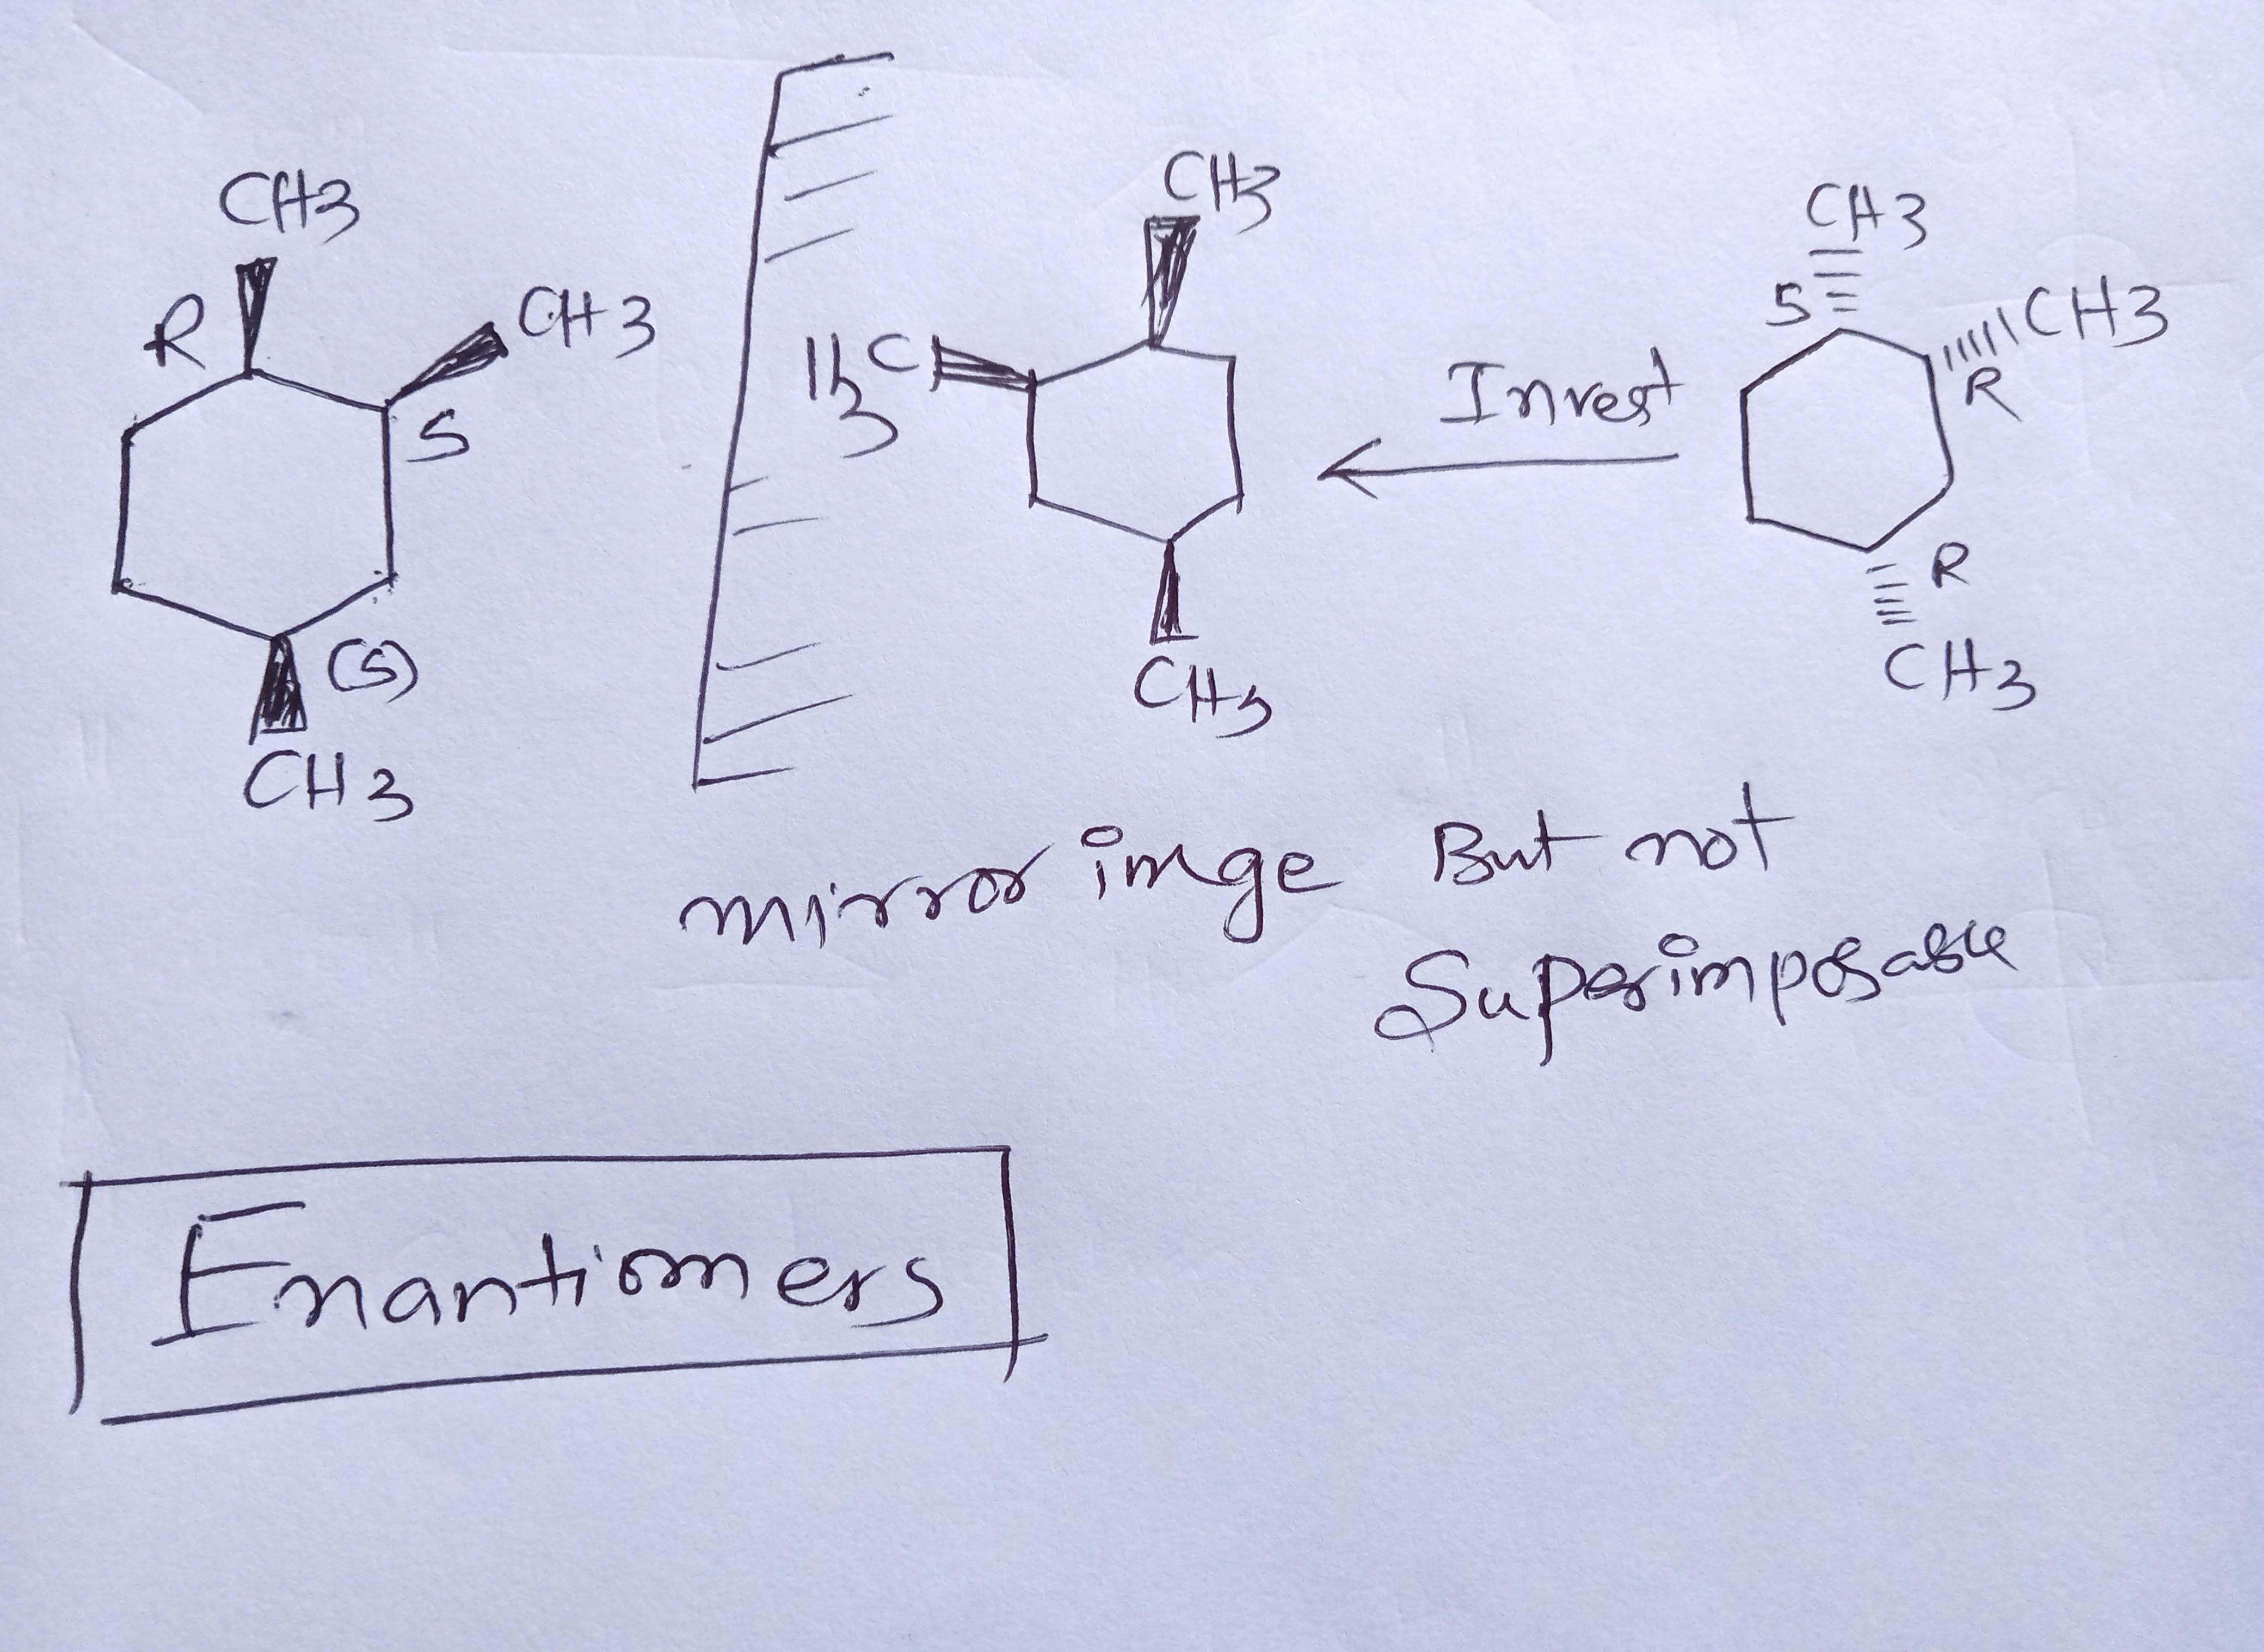 CH3
R
CH3
S
(S)
CH3
CH3
H3C
CH3
Invest
CH3
S
CH3
R
R
CH3
mirror imge But not
Superimposable
Enantiomers